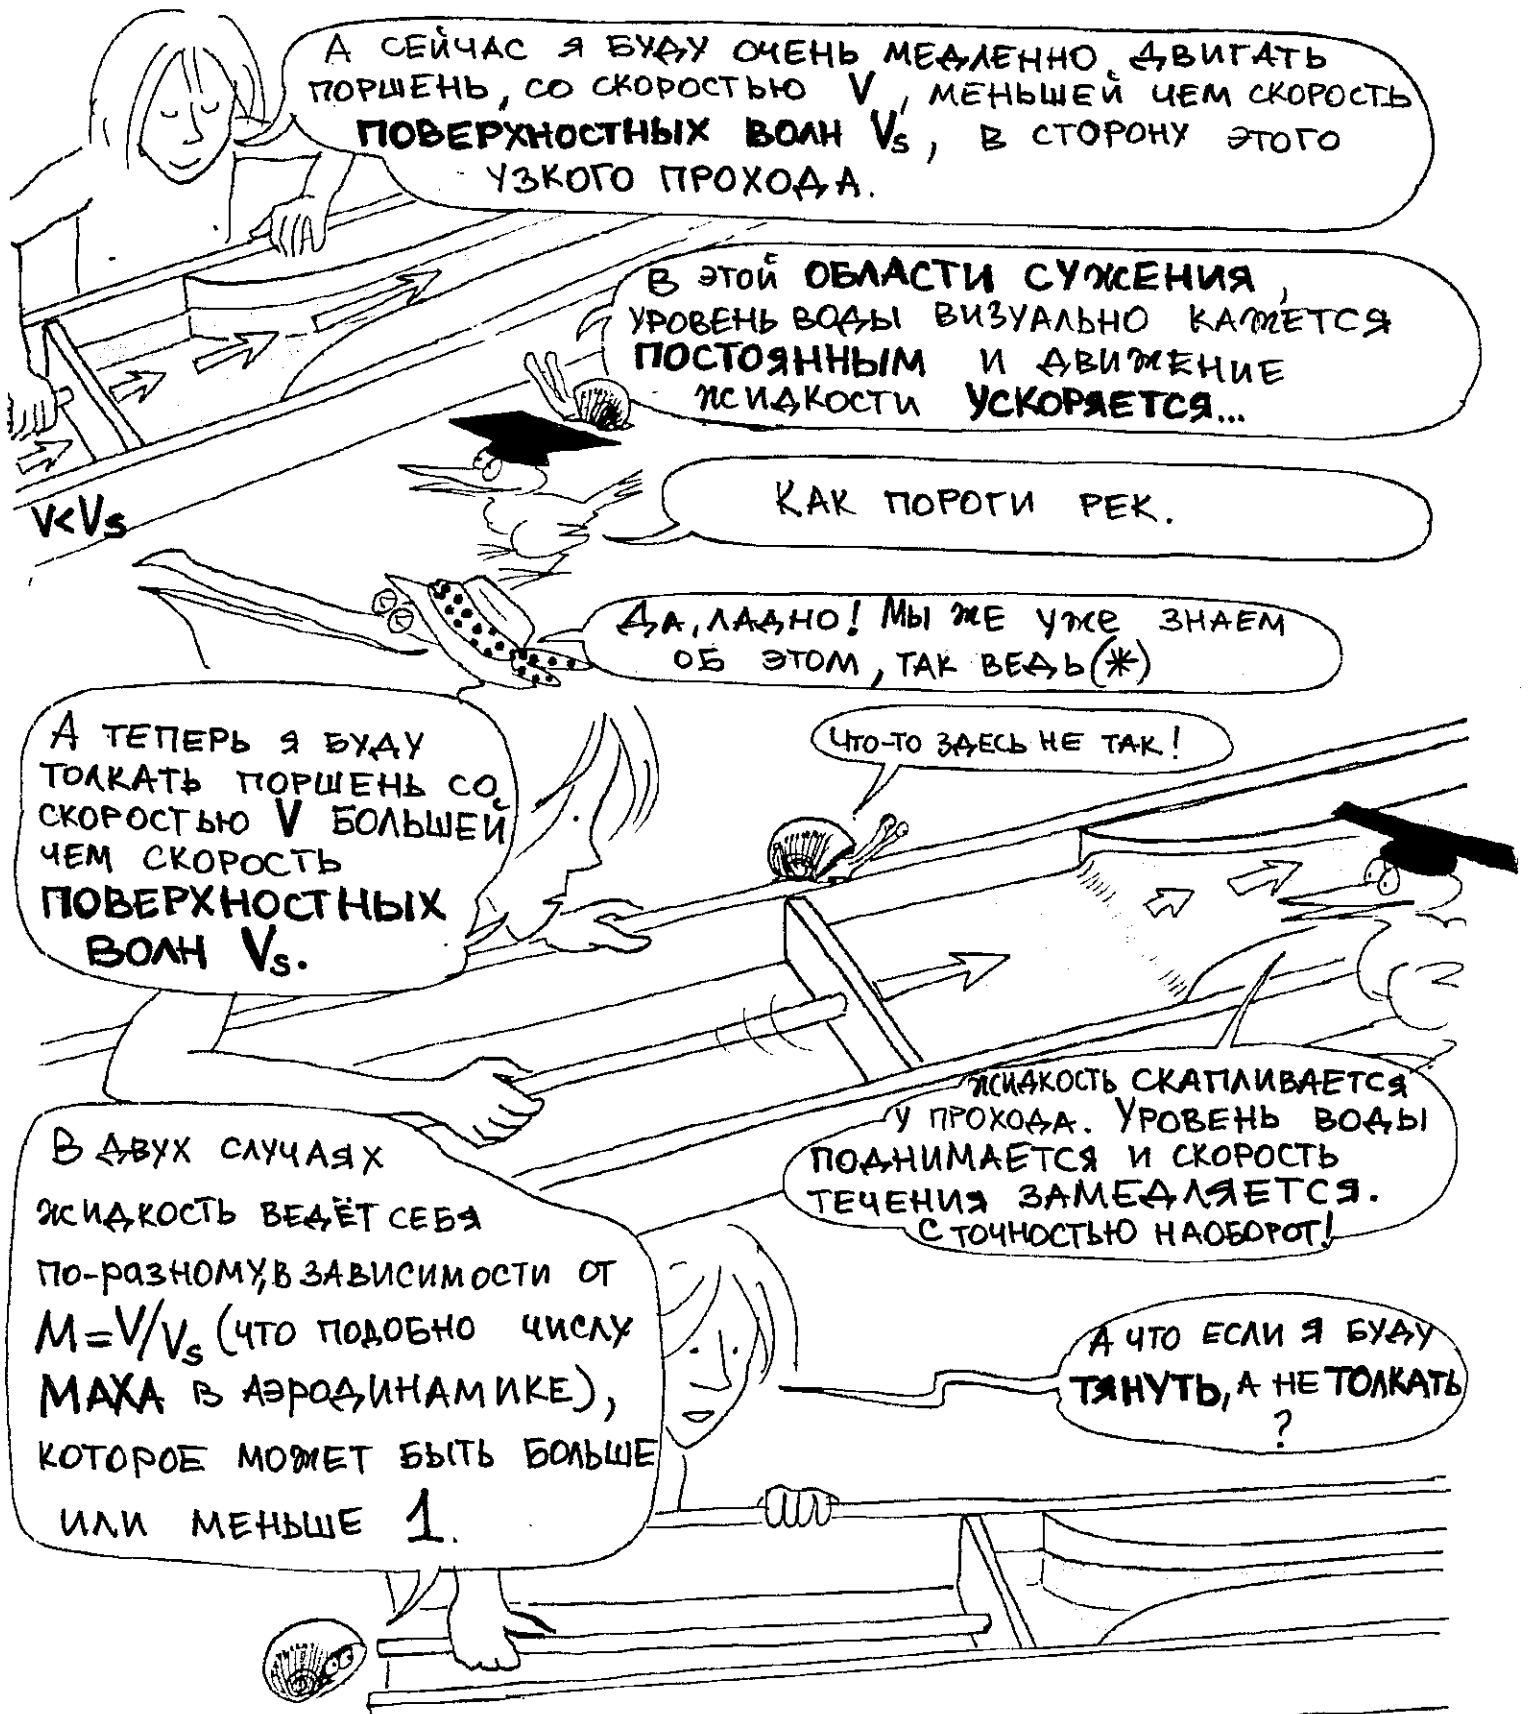 А СЕЙЧАС Я БУДУ ОЧЕНЬ МЕДЛЕННО ДВИГАТЬ
ПОРШЕНЬ, СО СКОРОСТЬЮ V, МЕНЬШЕЙ ЧЕМ СКОРОСТЬ
ПОВЕРХНОСТНЫХ ВОЛН Vs, В СТОРОНУ ЭТОГО
УЗКОГО ПРОХОДА.
В ЭТОЙ ОБЛАСТИ СУЖЕНИЯ,
УРОВЕНЬ ВОДЫ ВИЗУАЛЬНО КАЖЕТСЯ
ПОСТОЯННЫМ И ДВИЖЕНИЕ
ЖИДКОСТИ УСКОРЯЕТСЯ...
V<Vs
КАК ПОРОГИ РЕК.
ДА, ЛАДНО! МЫ ЖЕ УЖЕ ЗНАЕМ
ОБ ЭТОМ, ТАК ВЕДЬ(*)
А ТЕПЕРЬ Я БУДУ
ТОЛКАТЬ ПОРШЕНЬ СО
СКОРОСТЬЮ V БОЛЬШЕЙ
ЧЕМ СКОРОСТЬ
ПОВЕРХНОСТНЫХ
ВОЛН Vs.
ЧТО-ТО ЗДЕСЬ НЕ ТАК!
ЖИДКОСТЬ СКАПЛИВАЕТСЯ
У ПРОХОДА. УРОВЕНЬ ВОДЫ
ПОДНИМАЕТСЯ И СКОРОСТЬ
ТЕЧЕНИЯ ЗАМЕДЛЯЕТСЯ.
С ТОЧНОСТЬЮ НАОБОРОТ!
В ДВУХ СЛУЧАЯХ
ЖИДКОСТЬ ВЕДЁТ СЕБЯ
ПО-РАЗНОМУ, В ЗАВИСИМОСТИ ОТ
M=V/Vs (ЧТО ПОДОБНО ЧИСЛУ
МАХА В АЭРОДИНАМИКЕ),
КОТОРОЕ МОЖЕТ БЫТЬ БОЛЬШЕ
ИЛИ МЕНЬШЕ 1.
А ЧТО ЕСЛИ Я БУДУ
ТЯНУТЬ, А НЕ ТОЛКАТЬ
?